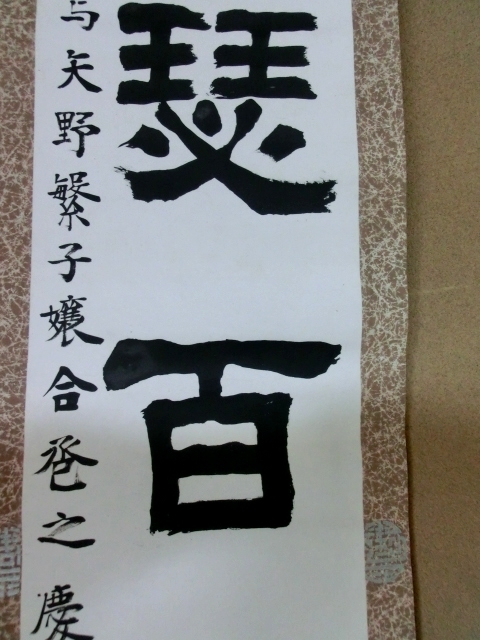 瑟百
与矢野繁子嬢合卺之慶